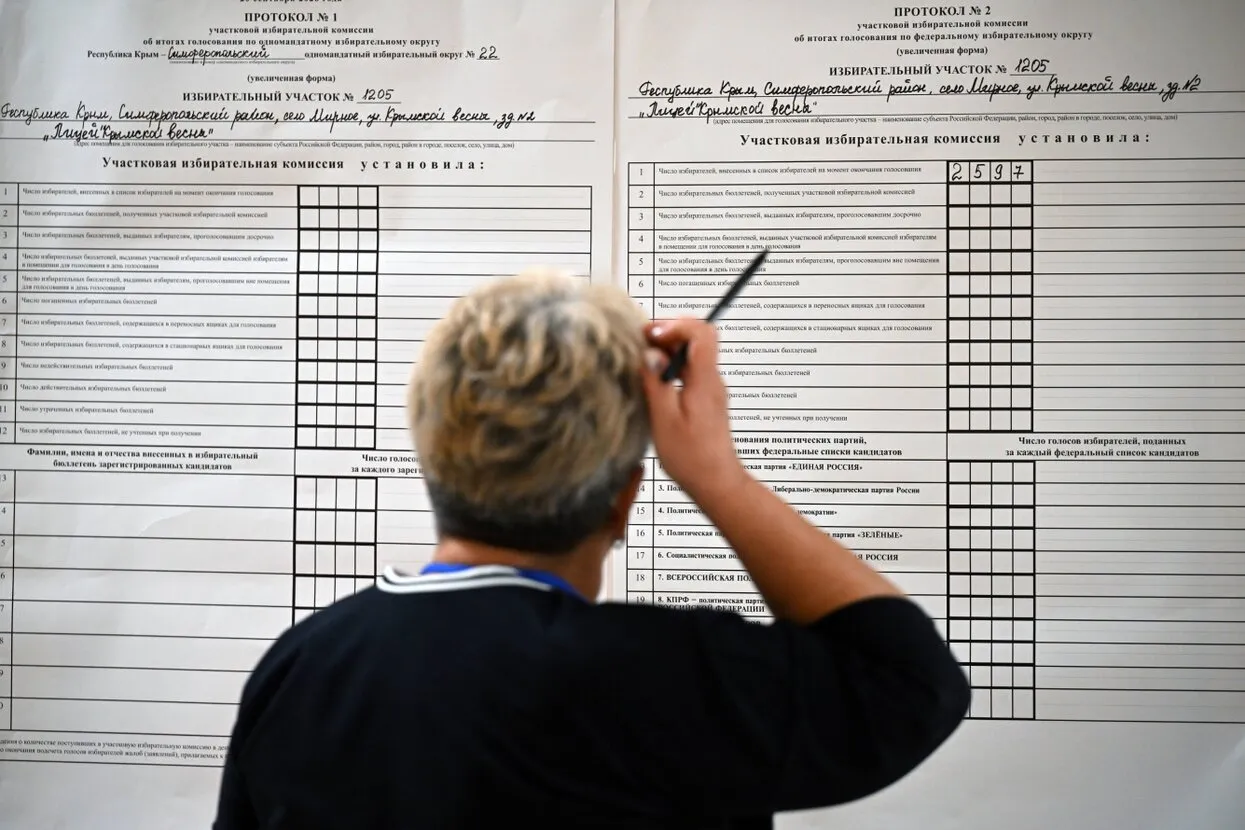 ПРОТОКОЛ № 1
участковой избирательной комиссии
об итогах голосования по одномандатному избирательному округу
Республика Крым – Симферопольский одномандатный избирательный округ № 22
(увеличенная форма)
ИЗБИРАТЕЛЬНЫЙ УЧАСТОК № 1205
Республика Крым, Симферопольский район, село Мирное, ул. Крымской весны, зд. №2
„Лицей "Крымской весны"
(адрес помещения для голосования избирательного участка – наименование субъекта Российской Федерации, район, город, район в городе, поселок, село, улица, дом)
Участковая избирательная комиссия установила:
1 Число избирателей, внесенных в список избирателей на момент окончания голосования
2 Число избирательных бюллетеней, полученных участковой избирательной комиссией
3 Число избирательных бюллетеней, выданных избирателям, проголосовавшим досрочно
4 Число избирательных бюллетеней, выданных участковой избирательной комиссией избирателям
в помещении для голосования в день голосования
5 Число избирательных бюллетеней, выданных избирателям, проголосовавшим вне помещения
для голосования в день голосования
6 Число погашенных избирательных бюллетеней
7 Число избирательных бюллетеней, содержащихся в переносных ящиках для голосования
8 Число избирательных бюллетеней, содержащихся в стационарных ящиках для голосования
9 Число недействительных избирательных бюллетеней
10 Число действительных избирательных бюллетеней
11 Число утраченных избирательных бюллетеней
12 Число избирательных бюллетеней, не учтенных при получении
Фамилии, имена и отчества внесенных в избирательный
бюллетень зарегистрированных кандидатов
Число
за каждого
3
4
5
6
7
8
9
0
о количестве поступивших в участковую избирательную комиссию в
окончания подсчета голосов избирателей жалоб (заявлений), прилагаемых к
ПРОТОКОЛ № 2
участковой избирательной комиссии
об итогах голосования по федеральному избирательному округу
(увеличенная форма)
ИЗБИРАТЕЛЬНЫЙ УЧАСТОК № 1205
Республика Крым, Симферопольский район, село Мирное, ул. Крымской весны, зд. №2
„Лицей "Крымской весны"
(адрес помещения для голосования избирательного участка – наименование субъекта Российской Федерации, район, город, район в городе, поселок, село, улица, дом)
Участковая избирательная комиссия установила:
1 Число избирателей, внесенных в список избирателей на момент окончания голосования 2597
2 Число избирательных бюллетеней, полученных участковой избирательной комиссией
3 Число избирательных бюллетеней, выданных избирателям, проголосовавшим досрочно
4 Число избирательных бюллетеней, выданных участковой избирательной комиссией избирателям
в помещении для голосования в день голосования
5 Число избирательных бюллетеней, выданных избирателям, проголосовавшим вне помещения
для голосования в день голосования
6 Число погашенных избирательных бюллетеней
7 бюллетеней, содержащихся в переносных ящиках для голосования
бюллетеней, содержащихся в стационарных ящиках для голосования
избирательных бюллетеней
избирательных бюллетеней
бюллетеней
бюллетеней, не учтенных при получении
политических партий,
федеральные списки кандидатов
Число голосов избирателей, поданных
за каждый федеральный список кандидатов
партия «ЕДИНАЯ РОССИЯ»
14 3. Либерально-демократическая партия России
15 4.
16 5. Политическая партия «ЗЕЛЁНЫЕ»
17 6. Социалистическая РОССИЯ
18 7. ВСЕРОССИЙСКАЯ
19 8. КПРФ – политическая
РОССИЙСКОЙ ФЕДЕРАЦИИ